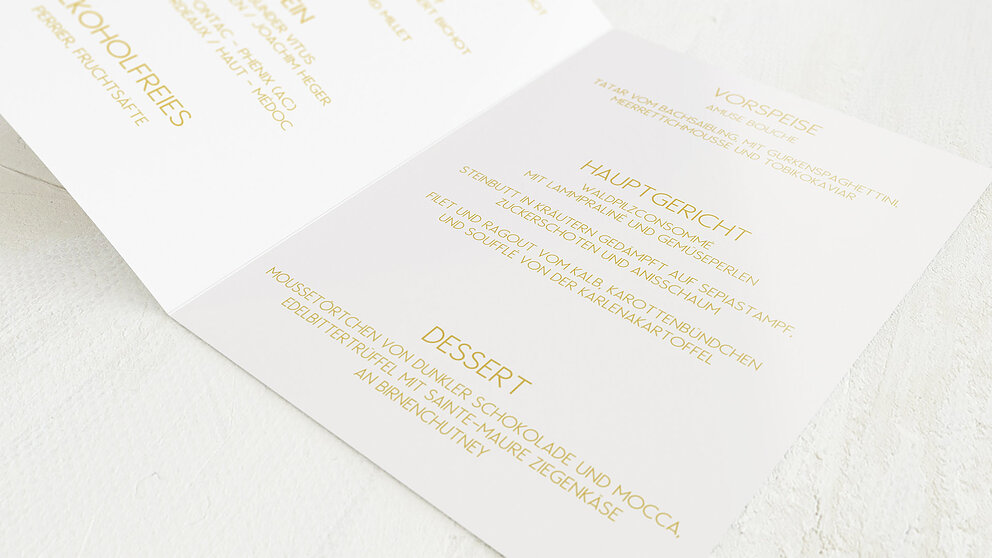 ERT BICHOT
ND MILLET
EIN
UNDER VITUS
EN / JOACHIM HEGER
ONTAC - PHENIX (AC)
RDEAUX / HAUT - MEDOC
LKOHOLFREIES
PERRIER, FRUCHTSÄFTE
VORSPEISE
AMUSE BOUCHE
TATAR VOM BACHSAIBLING, MIT GURKENSPAGHETTINI,
MEERRETTICHMOUSSE UND TOBIKOKAVIAR
HAUPTGERICHT
WALDPILZCONSOMME
MIT LAMMPRALINE UND GEMÜSEPERLEN
STEINBUTT IN KRÄUTERN GEDÄMPFT AUF SEPIASTAMPF,
ZUCKERSCHOTEN UND ANISSCHAUM
FILET UND RAGOUT VOM KALB, KAROTTENBÜNDCHEN
UND SOUFFLÉ VON DER KARLENAKARTOFFEL
DESSERT
MOUSSETÖRTCHEN VON DUNKLER SCHOKOLADE UND MOCCA,
EDELBITTERTRÜFFEL MIT SAINTE-MAURE ZIEGENKÄSE
AN BIRNENCHUTNEY